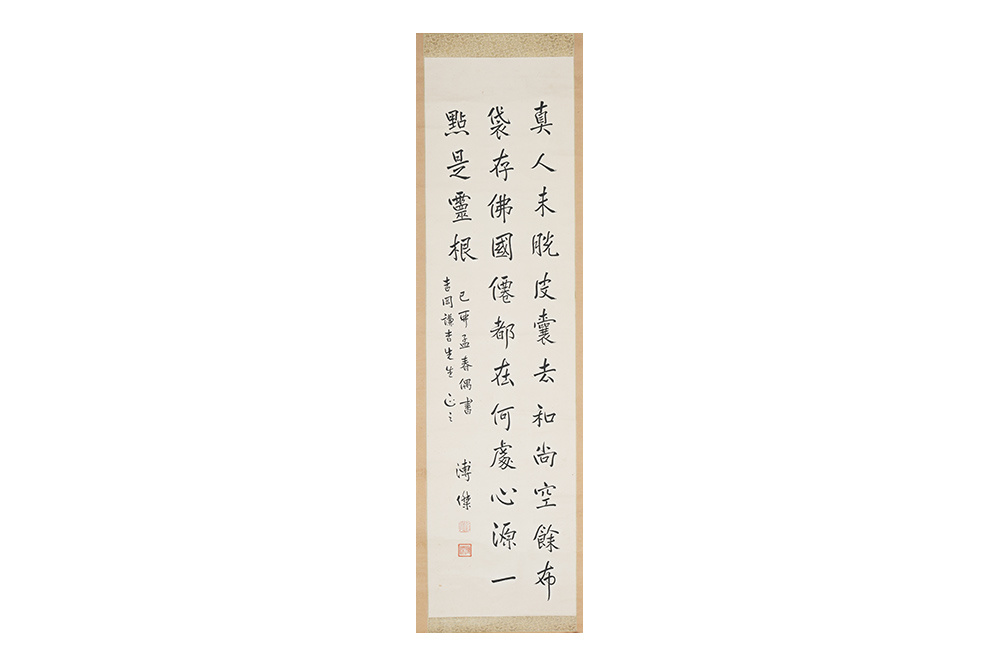 真人未脱皮囊去和尚空餘布
袋存佛國僊都在何處心源一
點是靈根
己未孟春偶書
吉岡謙吉先生正之
溥傑